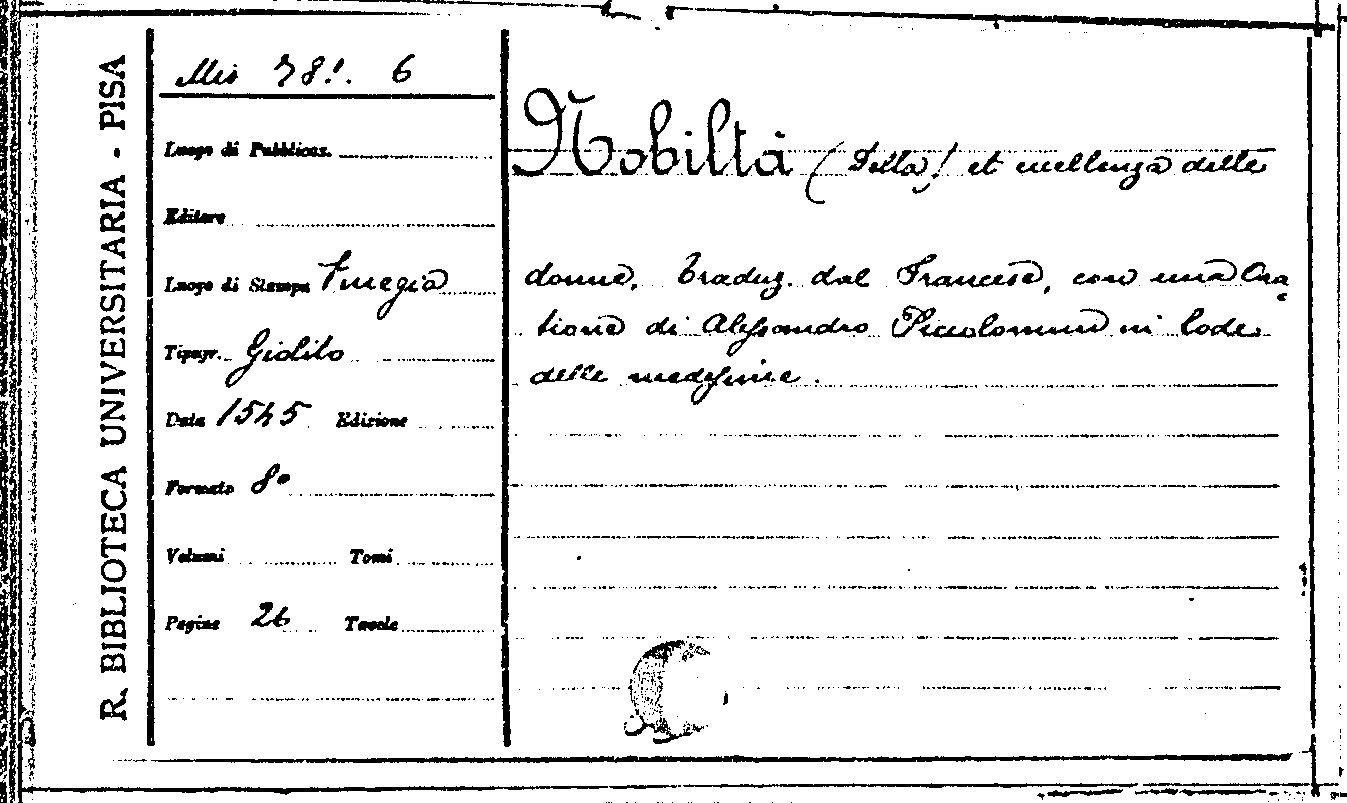 R. BIBLIOTECA UNIVERSITARIA - PISA
Mis 781. 6
Luogo di Pubblicaz.
Editore
Luogo di Stampa Vinegia
Tipogr. Giolito
Data 1545 Edizione
Formato 8°
Volumi Tomi
Pagine 26 Tavole
Nobiltà (Della) et excellenza delle
donne, traduz. dal Francese, con una Ora
tione di Alessandro Piccolomini in lode
delle medesime.